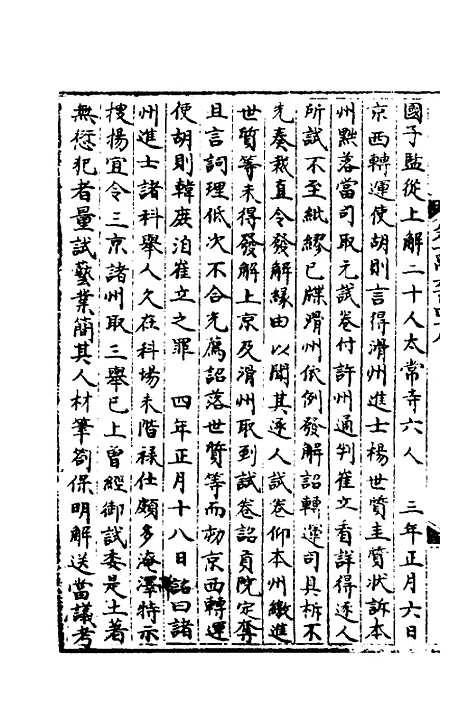 國子監從上解二十人太常寺六人　三年正月六日
京西轉運使胡則言得滑州進士楊世質王質狀訴本
州黜落當司取元試卷付許州通判崔立看詳得逐人
所試不至紕繆已牒滑州依例發解詔轉運司具析不
先奏裁直令發解緣由以聞其逐人試卷仰本州繳進
世質等未得發解上京及滑州取到試卷詔貢院定奪
且言詞理低次不合充薦詔落世質等而劾京西轉運
使胡則韓庶洎崔立之罪　四年正月十八日詔曰諸
州進士諸科舉人久在科場未階祿仕頗多淹滯特示
搜揚宜令三京諸州取三舉已上曾經御試委是土著
無愆犯者量試藝業簡其人材筆劄保明解送當議考